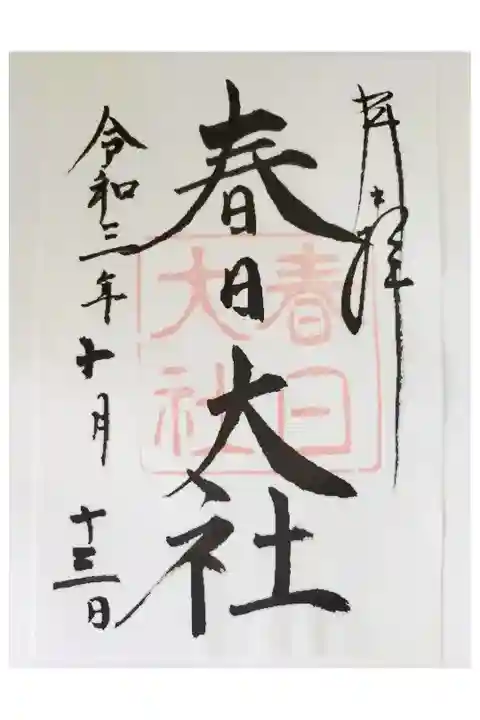 奉拝
春日大社
春日
大社
令和三年十月十三日